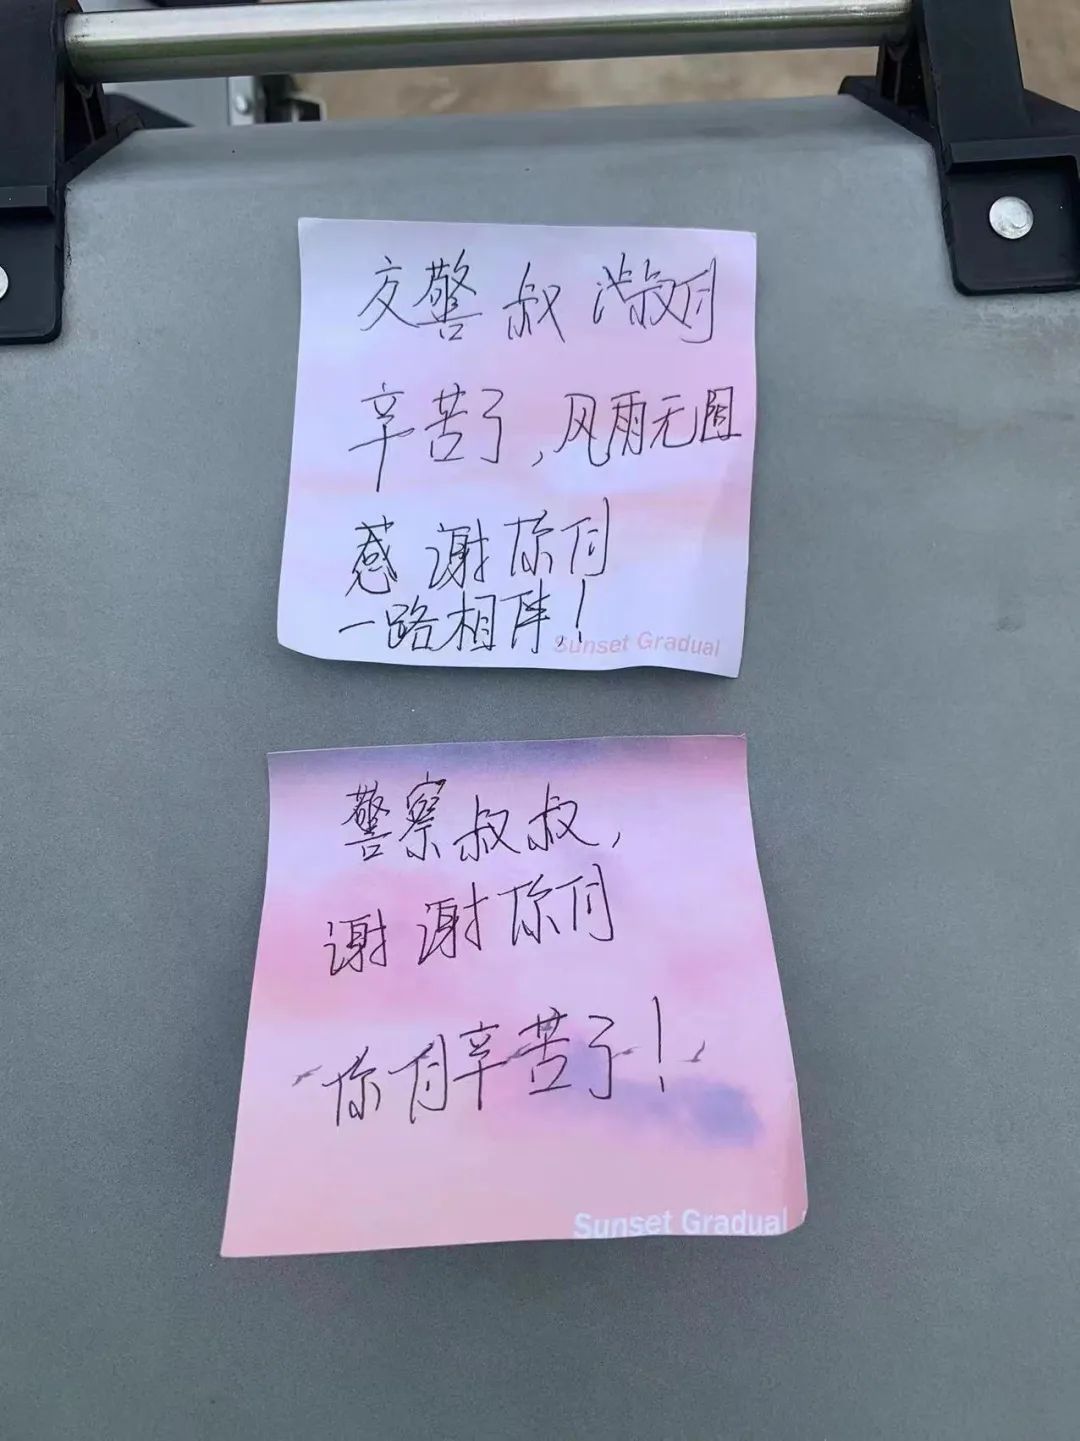 交警叔叔们
辛苦了,风雨无阻
感谢你们
一路相伴!
Sunset Gradual
警察叔叔,
谢谢你们
你们辛苦了!
Sunset Gradual